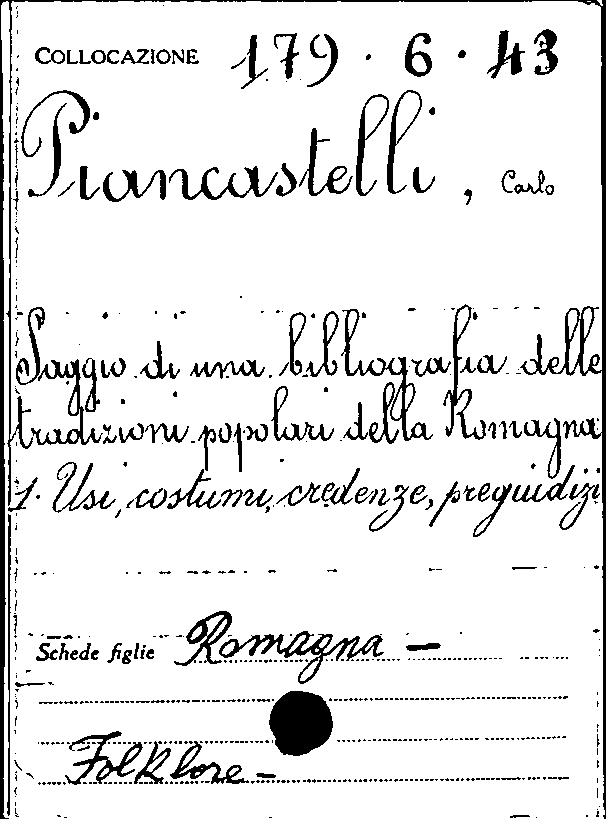 COLLOCAZIONE 179 · 6 · 43
Piancastelli, Carlo
Saggio di una bibliografia delle
tradizioni popolari della Romagna
1. Usi, costumi, credenze, pregiudizi
Schede figlie Romagna —
Folklore —